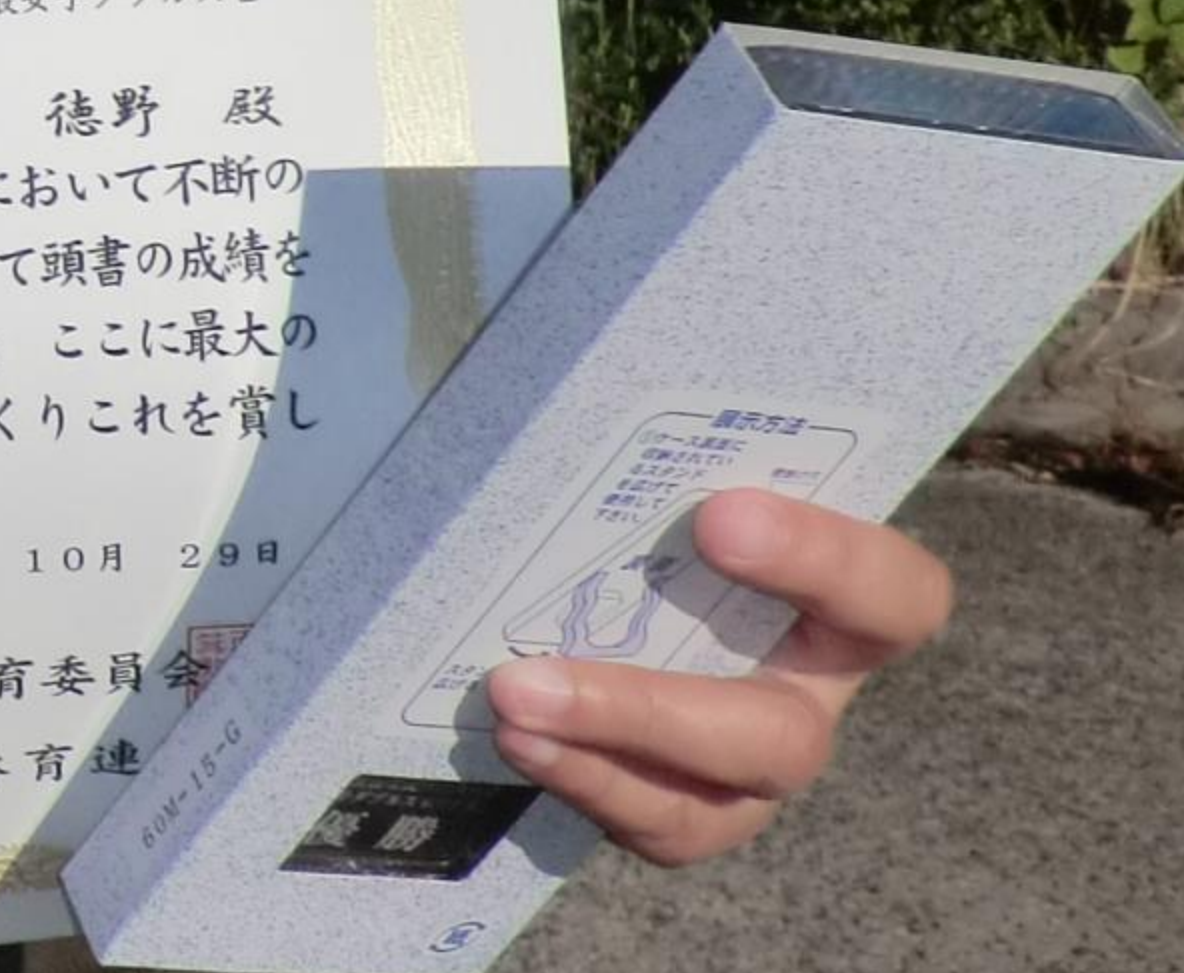 徳野 殿
において不断の
て頭書の成績を
ここに最大の
くりこれを賞し
10月 29日
育委員会
育連
展示方法
①ケース裏面に
収納されてい
るスタンド
を広げて
使用して
下さい。
スタン
広げ
60M-15-G
優勝
紙